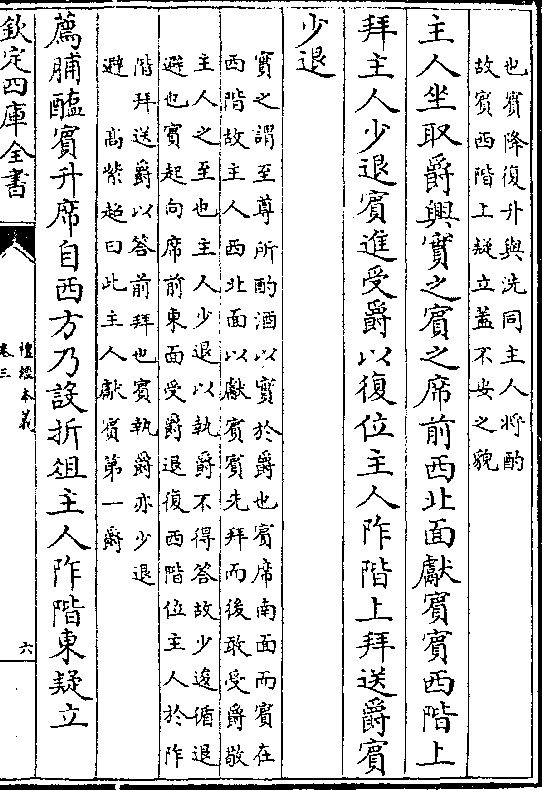 也賓降復升與洗同主人將酌
故賓西階上疑立蓋不安之貌
主人坐取爵興實之賓之席前西北面獻賓賓西階上
拜主人少退賓進受爵以復位主人阼階上拜送爵賓
少退
實之謂至尊所酌酒以實於爵也賓席南面而賓在
西階故主人西北面以獻賓賓先拜而後敢受爵敬
主人之至也主人少退以執爵不得答故少逡循退
避也賓起向席前東面受爵退復西階位主人於阼
階拜送爵以答前拜也賓執爵亦少退
避 高紫超曰此主人獻賓第一爵
薦脯醢賓升席自西方乃設折俎主人阼階東疑立
欽定四庫全書
禮經本義
卷三
六